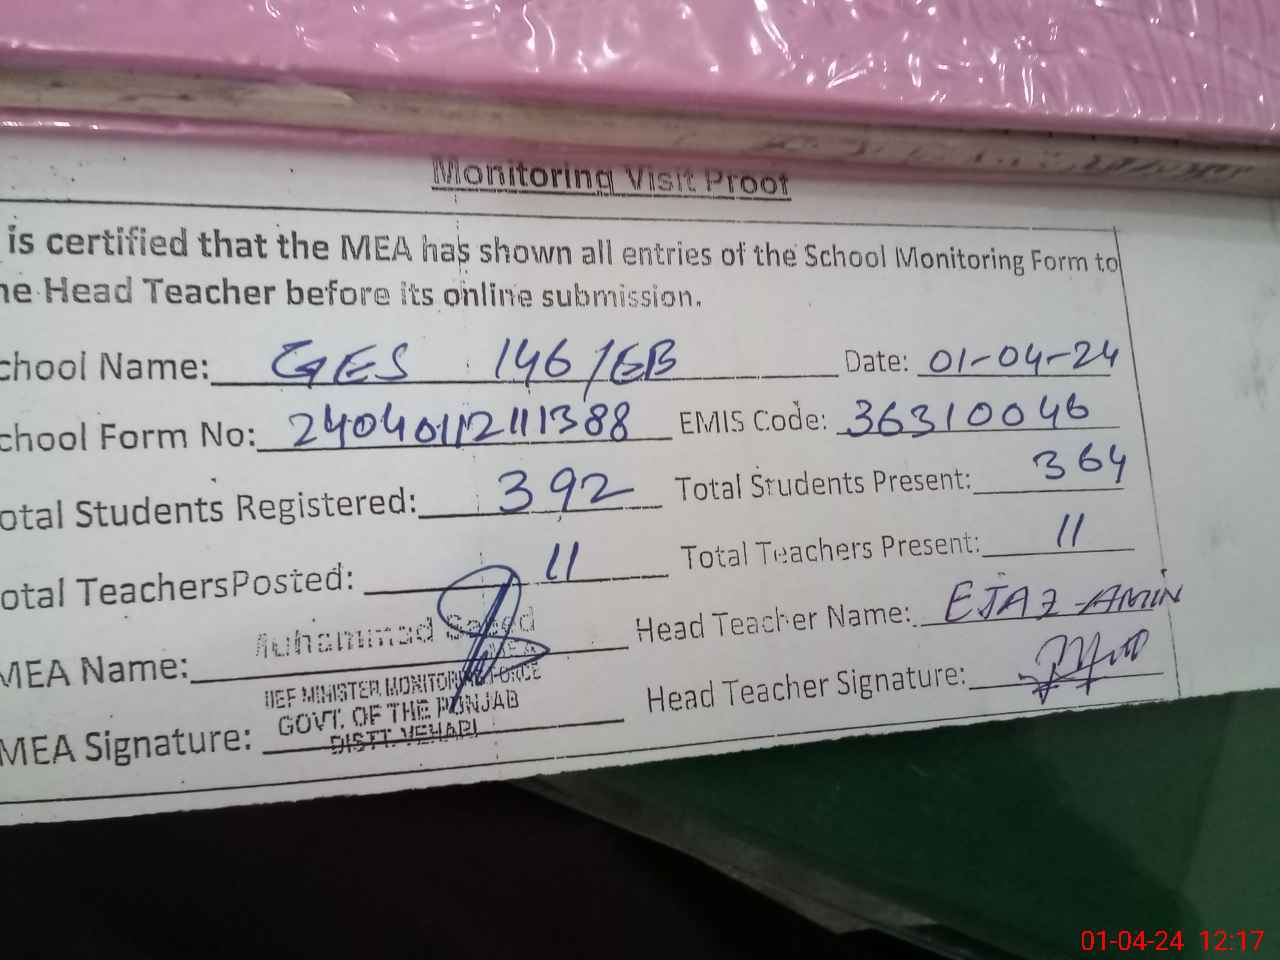 Monitoring Visit Proof
is certified that the MEA has shown all entries of the School Monitoring Form to
he Head Teacher before its online submission.
chool Name: GES 146/EB Date: 01-04-24
chool Form No: 24040112111388 EMIS Code: 36310046
otal Students Registered: 392 Total Students Present: 364
otal TeachersPosted: 11 Total Teachers Present: 11
MEA Name: Muhammad Saeed Head Teacher Name: EJAZ-AMIN
MINISTER MONITORING FORCE
GOVT. OF THE PUNJAB
MEA Signature: DISTT. VEHARI Head Teacher Signature:
01-04-24 12:17